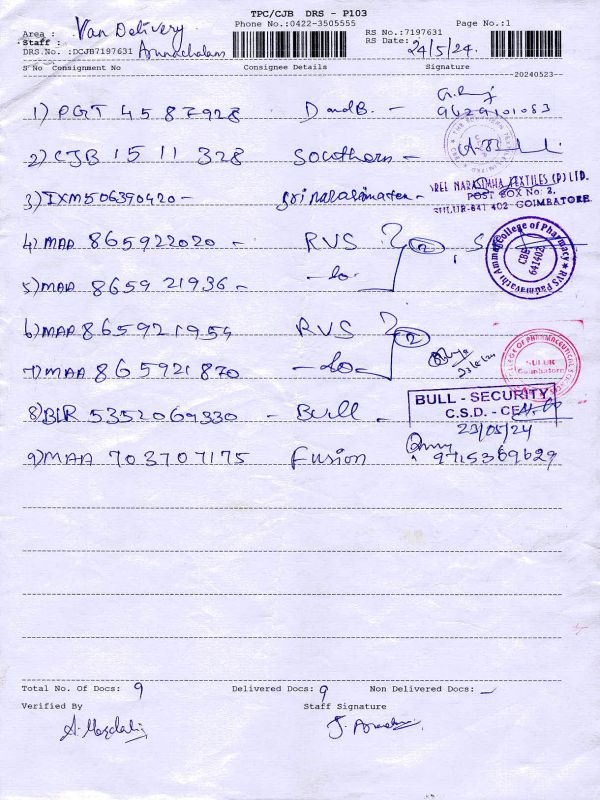 TPC/CJB DRS - P103
Phone No.:0422-3505555 Page No.:1
Area : Van Delivery RS No.:7197631
Staff : Arunachalam RS Date: 24/5/24.
DRS.No. :DCJB7197631
S No Consignment No Consignee Details Signature
20240523
1) PGT 45 87928 D and B. -
9629101083
2) CJB 15 11 328 Southern -
3) IXM 506390420 - Sri narasimatex - SREE NARASIMHA TEXTILES (P) LTD.
POST BOX No: 2,
SULUR-641 402 - COIMBATORE
4) MAA 865922020 - RVS 2
RVS Padmavathi Ammal College of Pharmacy
CBE
641402
5) MAA 8659 21936 - -do-
6) MAA 8659 21954 RVS 2
COLLEGE OF PHARMACEUTICAL
SULUR
Coimbatore
7) MAA 865921870 -do- 23/5/24
8) BLR 5352069330 - Bull - BULL - SECURITY
C.S.D. - CEA
23/05/24
9) MAA 703707175 Fusion 9715369629
Total No. Of Docs: 9 Delivered Docs: 9 Non Delivered Docs: -
Verified By Staff Signature